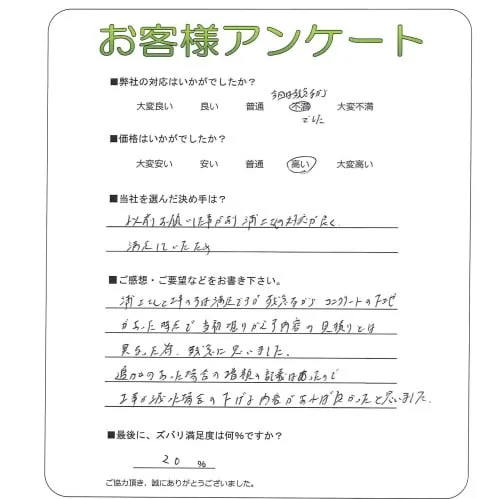 お客様アンケート
■弊社の対応はいかがでしたか?
今回は残念ながら
大変良い 良い 普通 不満 大変不満
でした
■価格はいかがでしたか?
大変安い 安い 普通 高い 大変高い
■当社を選んだ決め手は?
以前お願いした事があり 浦上さんの対応が良く、
満足していたため
■ご感想・ご要望などをお書き下さい。
浦上さんと工事の方は満足ですが 残念ながら コンクリートの下地
があった時点で当初 掘りから 内容の見積りとは
異なった為、残念に思いました。
追加のあった場合の増額の記載はあったので
工事が減った場合の下げる内容があれば良かったと思いました。
■最後に、ズバリ満足度は何%ですか?
20 %
ご協力頂き、誠にありがとうございました。